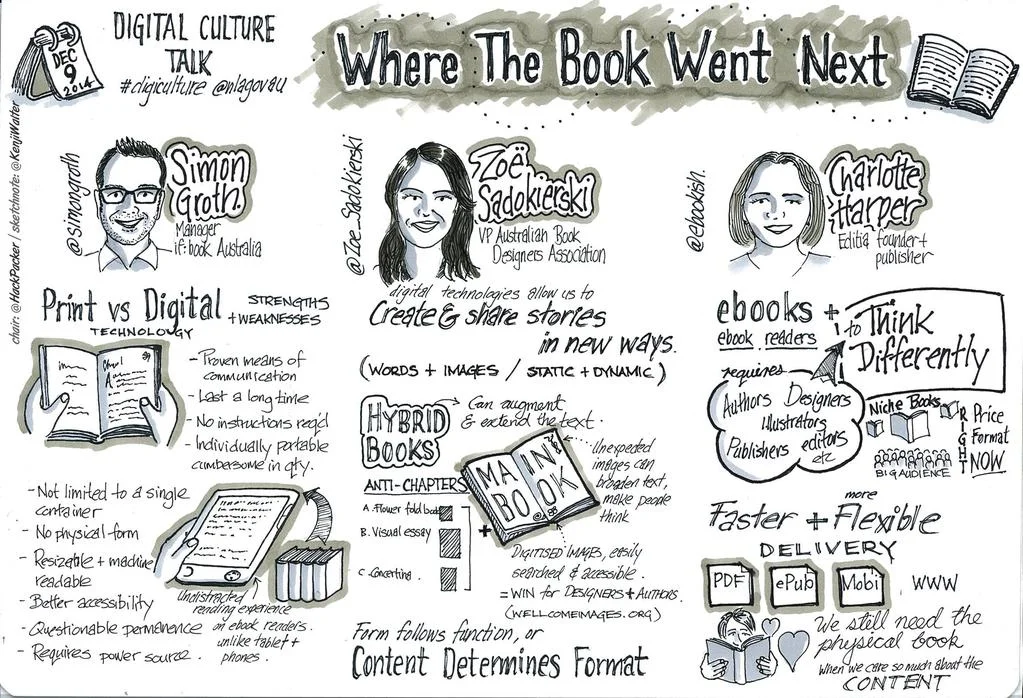 DEC
9
2014
DIGITAL CULTURE
TALK
#digiculture @nlagovau
Where The Book Went Next
chair: @HackPacker / sketchnote: @KenjiWalter
@simongroth
Simon
Groth
Manager
if:book Australia
Print vs Digital
TECHNOLOGY
STRENGTHS
+ WEAKNESSES
- Proven means of
communication
- Last a long time
- No instructions req'd
- Individually portable
cumbersome in qty.
- Not limited to a single
container
- No physical form
- Resizable + machine
readable
- Better accessibility
- Questionable permanence
- Requires power source.
Undistracted
reading experience
on ebook readers.
unlike tablet +
phones.
@Zoe_Sadokierski
Zoë
Sadokierski
VP Australian Book
Designers Association
digital technologies allow us to
Create & share stories
in new ways.
(WORDS + IMAGES / STATIC + DYNAMIC)
HYBRID
BOOKS
Can augment
& extend the text.
ANTI-CHAPTERS
A. Flower fold book
B. Visual essay
C. Concertina.
+
MAIN
BOOK
Unexpected
images can
broaden text,
make people
think
DIGITISED IMAGES, easily
searched & accessible.
= WIN for DESIGNERS + AUTHORS.
(WELLCOMEIMAGES.ORG)
Form follows function, or
Content Determines Format
@ebookish.
Charlotte
Harper
Editia founder +
publisher
ebooks +
ebook readers
to Think
Differently
requires
Authors Designers
Illustrators
Publishers editors
etc
Niche Books
BIG AUDIENCE
RIGHT
Price
Format
NOW
more
Faster + Flexible
DELIVERY
PDF
ePub
Mobi
WWW
We still need the
physical book
when we care so much about the
CONTENT